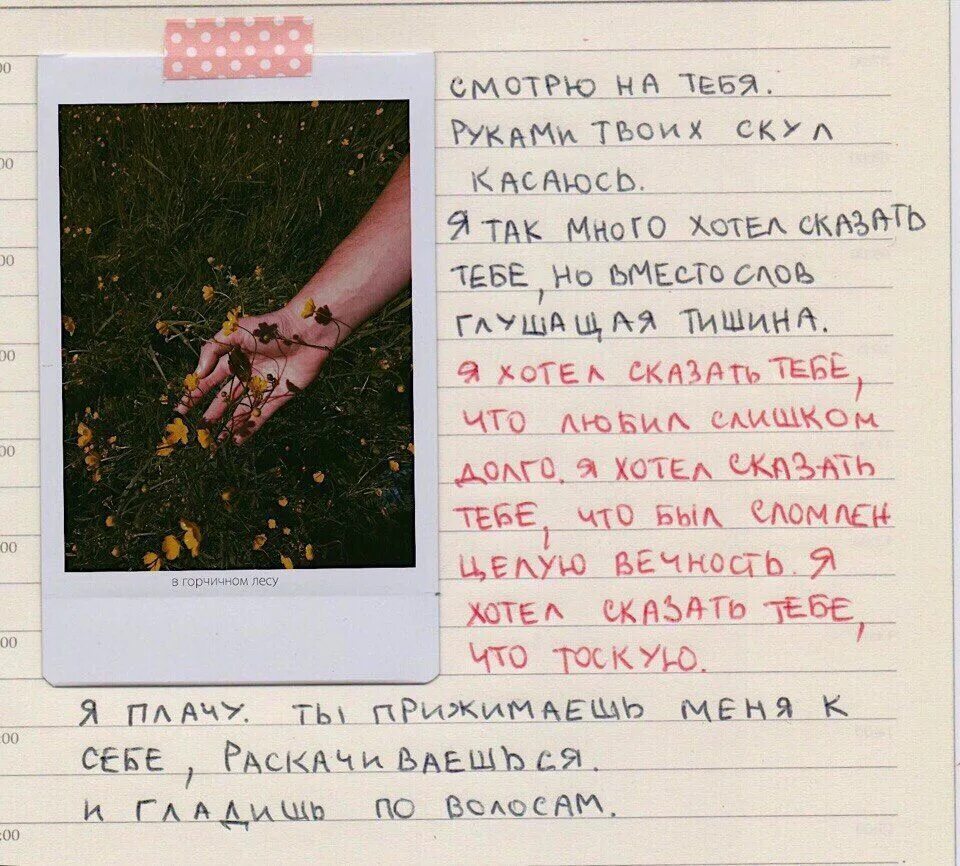 СМОТРЮ НА ТЕБЯ.
РУКАМИ ТВОИХ СКУЛ
КАСАЮСЬ.
Я ТАК МНОГО ХОТЕЛ СКАЗАТЬ
ТЕБЕ, НО ВМЕСТО СЛОВ
ГЛУШАЩАЯ ТИШИНА.
Я ХОТЕЛ СКАЗАТЬ ТЕБЕ,
ЧТО ЛЮБИЛ СЛИШКОМ
ДОЛГО. Я ХОТЕЛ СКАЗАТЬ
ТЕБЕ, ЧТО БЫЛ СЛОМЛЕН
ЦЕЛУЮ ВЕЧНОСТЬ. Я
ХОТЕЛ СКАЗАТЬ ТЕБЕ,
ЧТО ТОСКУЮ.
в горчичном лесу
Я ПЛАЧУ. ТЫ ПРИЖИМАЕШЬ МЕНЯ К
СЕБЕ, РАСКАЧИВАЕШЬСЯ.
И ГЛАДИШЬ ПО ВОЛОСАМ.